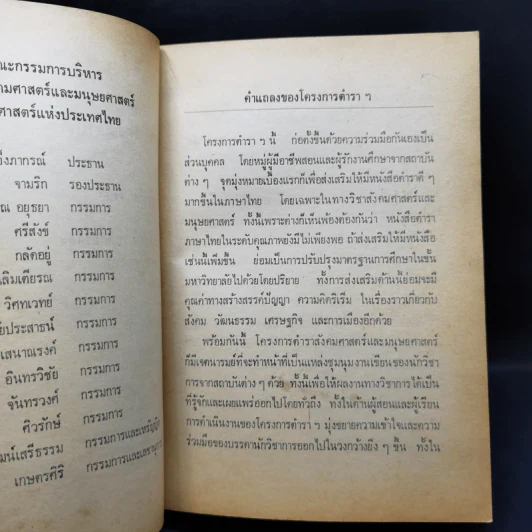 ณะกรรมการบริหาร
มศาสตร์และมนุษยศาสตร์
ศาสตร์แห่งประเทศไทย
อึ๊งภากรณ์ ประธาน
จามริก รองประธาน
ณ อยุธยา กรรมการ
ศรีสังข์ กรรมการ
กลัดอยู่ กรรมการ
ลิมเตียรณ กรรมการ
วิศทเวทย์ กรรมการ
ัยประสาธน์ กรรมการ
เสนาณรงค์ กรรมการ
อินทรวิชัย กรรมการ
จันทรวงศ์ กรรมการ
ศิวรักษ์ กรรมการ
ฒน์เสรีธรรม กรรมการและเหรัญญิก
เกษตรศิริ กรรมการและเลขานุการ
คำแถลงของโครงการตำรา ฯ
โครงการตำรา ฯ นี้ ก่อตั้งขึ้นด้วยความร่วมมือกันเองเป็น
ส่วนบุคคล โดยหมู่ผู้มีอาชีพสอนและผู้รักงานศึกษาจากสถาบัน
ต่าง ๆ จุดมุ่งหมายเบื้องแรกก็เพื่อส่งเสริมให้มีหนังสือตำราดี ๆ
มากขึ้นในภาษาไทย โดยเฉพาะในทางวิชาสังคมศาสตร์และ
มนุษยศาสตร์ ทั้งนี้เพราะต่างก็เห็นพ้องต้องกันว่า หนังสือตำรา
ภาษาไทยในระดับคุณภาพยังมีไม่เพียงพอ ถ้าส่งเสริมให้มีหนังสือ
เช่นนี้เพิ่มขึ้น ย่อมเป็นการปรับปรุงมาตรฐานการศึกษาในขั้น
มหาวิทยาลัยไปด้วยโดยปริยาย ทั้งการส่งเสริมด้านนี้ย่อมจะมี
คุณค่าทางสร้างสรรค์ปัญญา ความคิดริเริ่ม ในเรื่องราวเกี่ยวกับ
สังคม วัฒนธรรม เศรษฐกิจ และการเมืองอีกด้วย
พร้อมกันนี้ โครงการตำราสังคมศาสตร์และมนุษยศาสตร์
ก็มีเจตนารมย์ที่จะทำหน้าที่เป็นแหล่งชุมนุมงานเขียนของนักวิชา
การจากสถาบันต่าง ๆ ด้วย ทั้งนี้เพื่อให้ผลงานทางวิชาการได้เป็น
ที่รู้จักและเผยแพร่ออกไปโดยทั่วถึง ทั้งในด้านผู้สอนและผู้เรียน
การดำเนินงานของโครงการตำรา ฯ มุ่งขยายความเข้าใจและความ
ร่วมมือของบรรดานักวิชาการออกไปในวงกว้างยิ่ง ๆ ขึ้น ทั้งใน